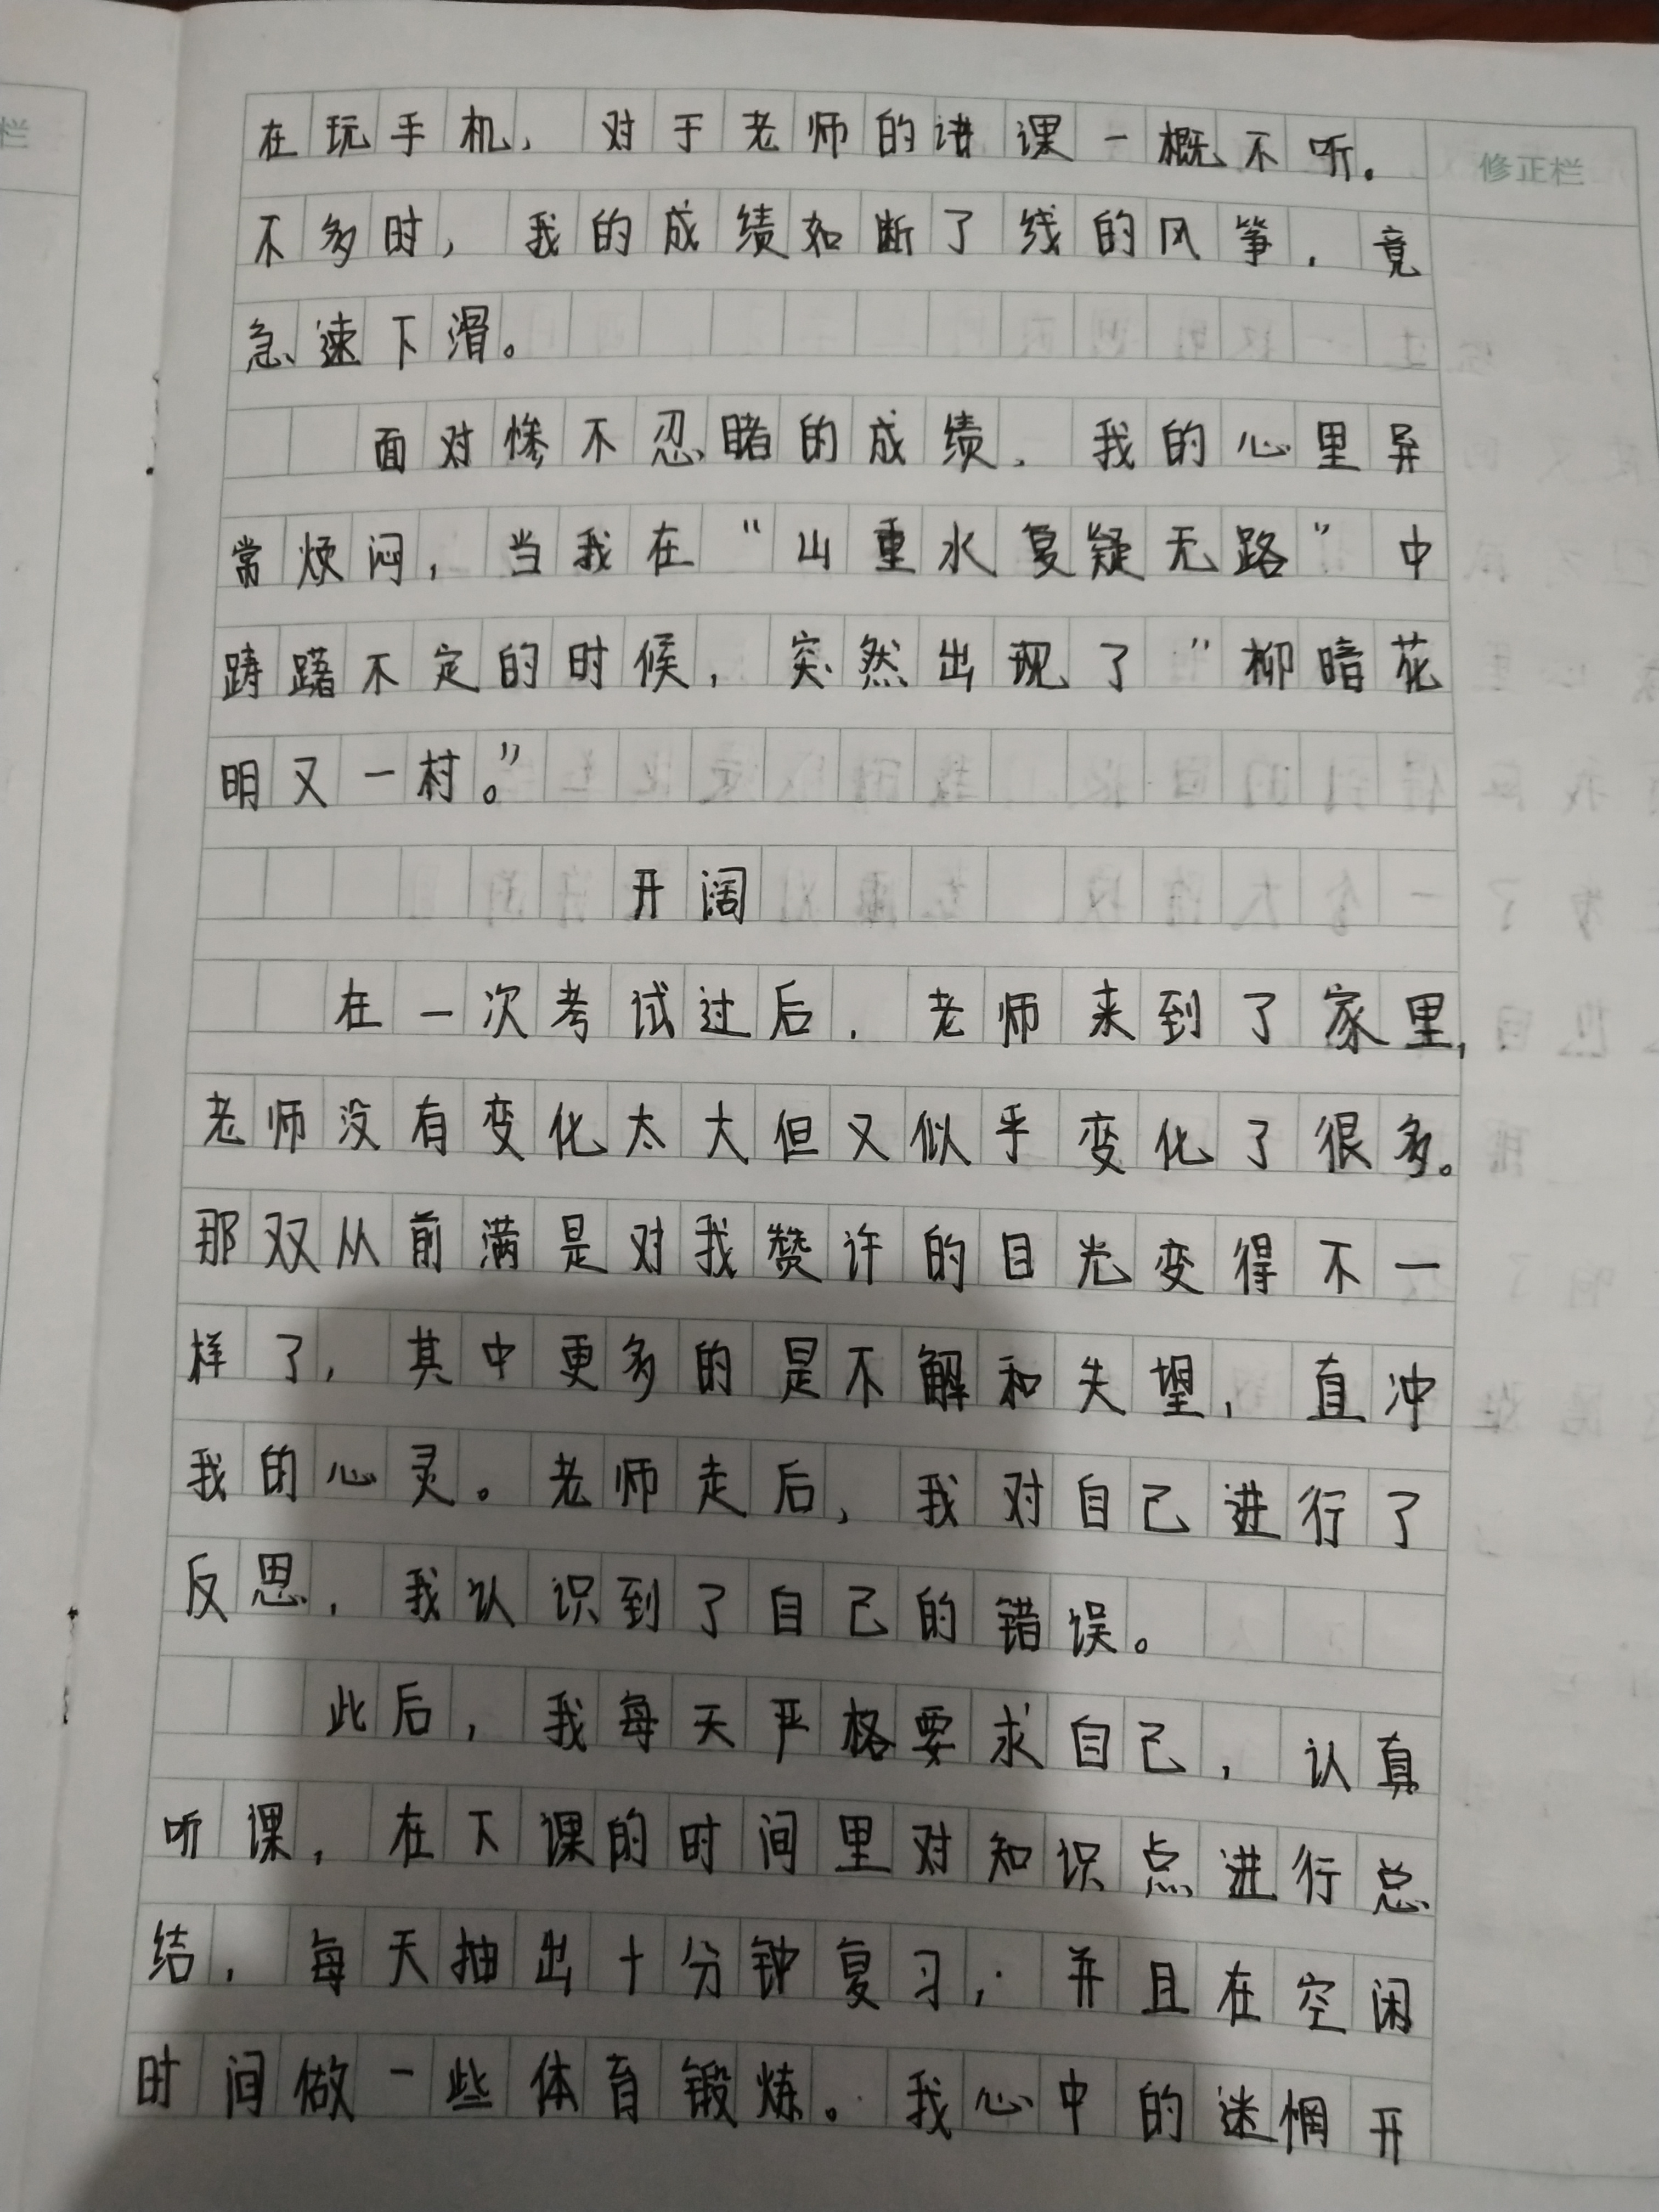 栏
修正栏
在玩手机，对于老师的讲课一概不听。
不多时，我的成绩如断了线的风筝，竟
急速下滑。
面对惨不忍睹的成绩，我的心里异
常烦闷，当我在“山重水复疑无路”中
踌躇不定的时候，突然出现了“柳暗花
明又一村。”
开阔
在一次考试过后，老师来到了家里，
老师没有变化太大但又似乎变化了很多。
那双从前满是对我赞许的目光变得不一
样了，其中更多的是不解和失望，直冲
我的心灵。老师走后，我对自己进行了
反思，我认识到了自己的错误。
此后，我每天严格要求自己，认真
听课，在下课的时间里对知识点进行总
结，每天抽出十分钟复习；并且在空闲
时间做一些体育锻炼。我心中的迷惘开